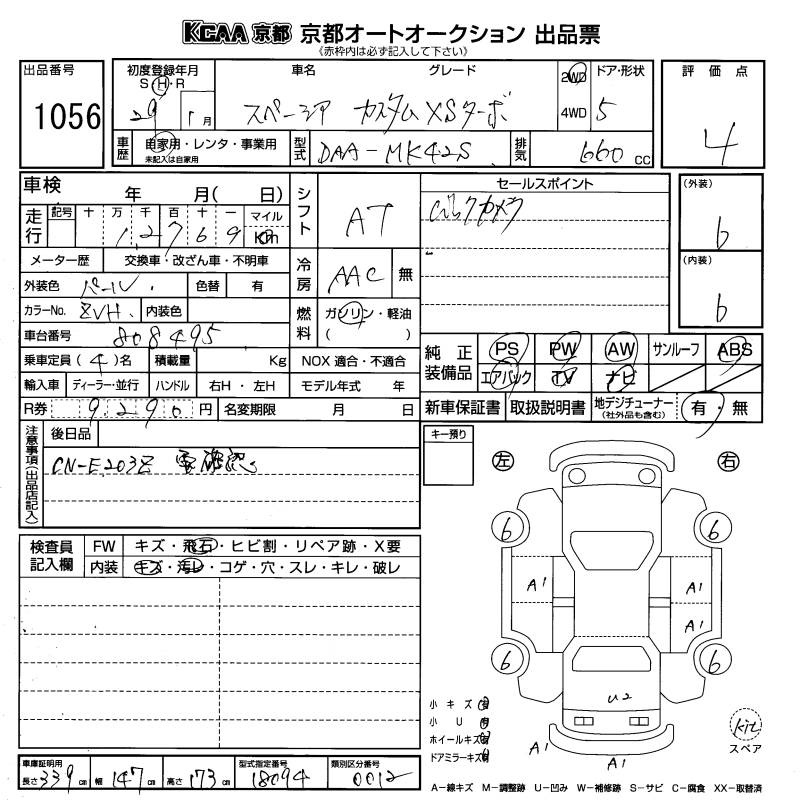 KCAA 京都 京都オートオークション 出品票
《赤枠内は必ず記入して下さい》
出品番号 初度登録年月 車名 グレード 2WD ドア・形状 評価点
S H・R
1056 29年 1月 スペーシア カスタムXSターボ 4WD 5 4
車歴 自家用・レンタ・事業用 型式 DAA-MK42S 排気 660 CC
未記入は自家用
車検 年 月( 日) シフト AT セールスポイント (外装)
走行 記号 十 万 千 百 十 一 マイル バックカメラ 6
1,2769 Km
メーター歴 交換車・改ざん車・不明車 冷房 AAC 無 (内装)
外装色 パール. 色替 有 6
カラーNo. ZVH. 内装色 燃料 ガソリン・軽油
車台番号 808495 ( )
乗車定員(4)名 積載量 Kg NOX 適合・不適合 純正装備品 PS PW AW サンルーフ ABS
輸入車 ディーラー・並行 ハンドル 右H・左H モデル年式 年 エアバック TV ナビ
R券 9,290円 名変期限 月 日 新車保証書 取扱説明書 地デジチューナー (社外品も含む) 有・無
注意事項(出品店記入) 後日品 キー預り 左 右
CN-E203Z 要確認
検査員記入欄 FW キズ・飛石・ヒビ割・リペア跡・X要
内装 キズ・汚レ・コゲ・穴・スレ・キレ・破レ
6 6
A1 A1
A1
6 6
U2
小キズ有
小U有
ホイールキズ有
ドアミラーキズ有
A1 A1
kit
スペア
車庫証明用 長さ 339cm 幅 147cm 高さ 173cm 型式指定番号 18094 類別区分番号 0012
A－線キズ M－調整跡 U－凹み W－補修跡 S－サビ C－腐食 XX－取替済